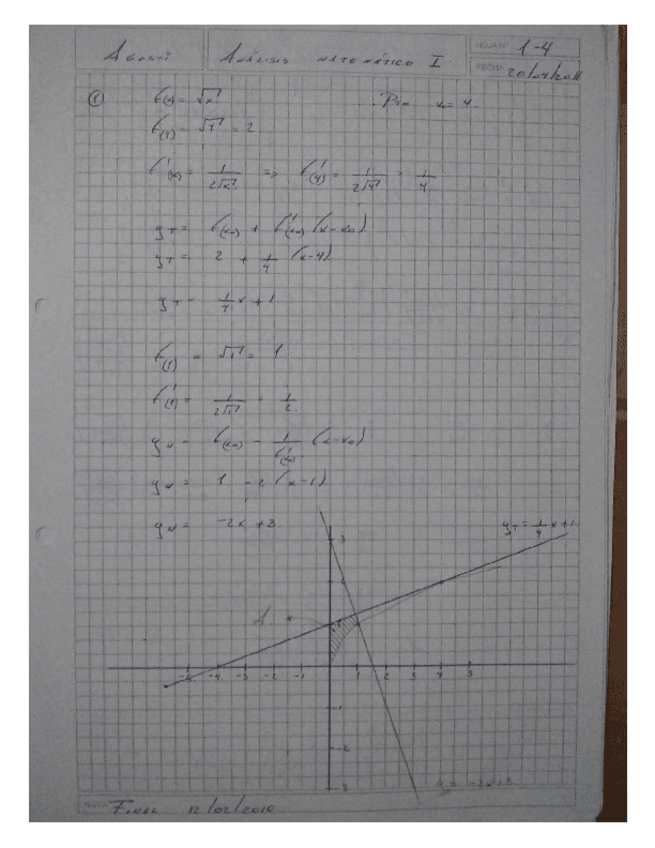 AGOSTI ANÁLISIS MATEMÁTICO I HOJA Nº 1-4
FECHA 20/04/2011
① f(x) = √x Para x₀ = 4.
f(4) = √4 = 2
f'(x) = 1/(2√x) => f'(4) = 1/(2√4) = 1/4
yT = f(x₀) + f'(x₀) (x-x₀)
yT = 2 + 1/4 (x-4)
yT = 1/4 x + 1
f(1) = √1 = 1
f'(1) = 1/(2√1) = 1/2
yN = f(x₀) - 1/f'(x₀) (x-x₀)
yN = 1 - 2 (x-1)
yN = -2x + 3
yT = 1/4 x + 1
3
2
A. 1
-5 -4 -3 -2 -1 1 2 3 4 5
-1
-2
-3 yN = -2x+3
NOTA FINAL 12/02/2010